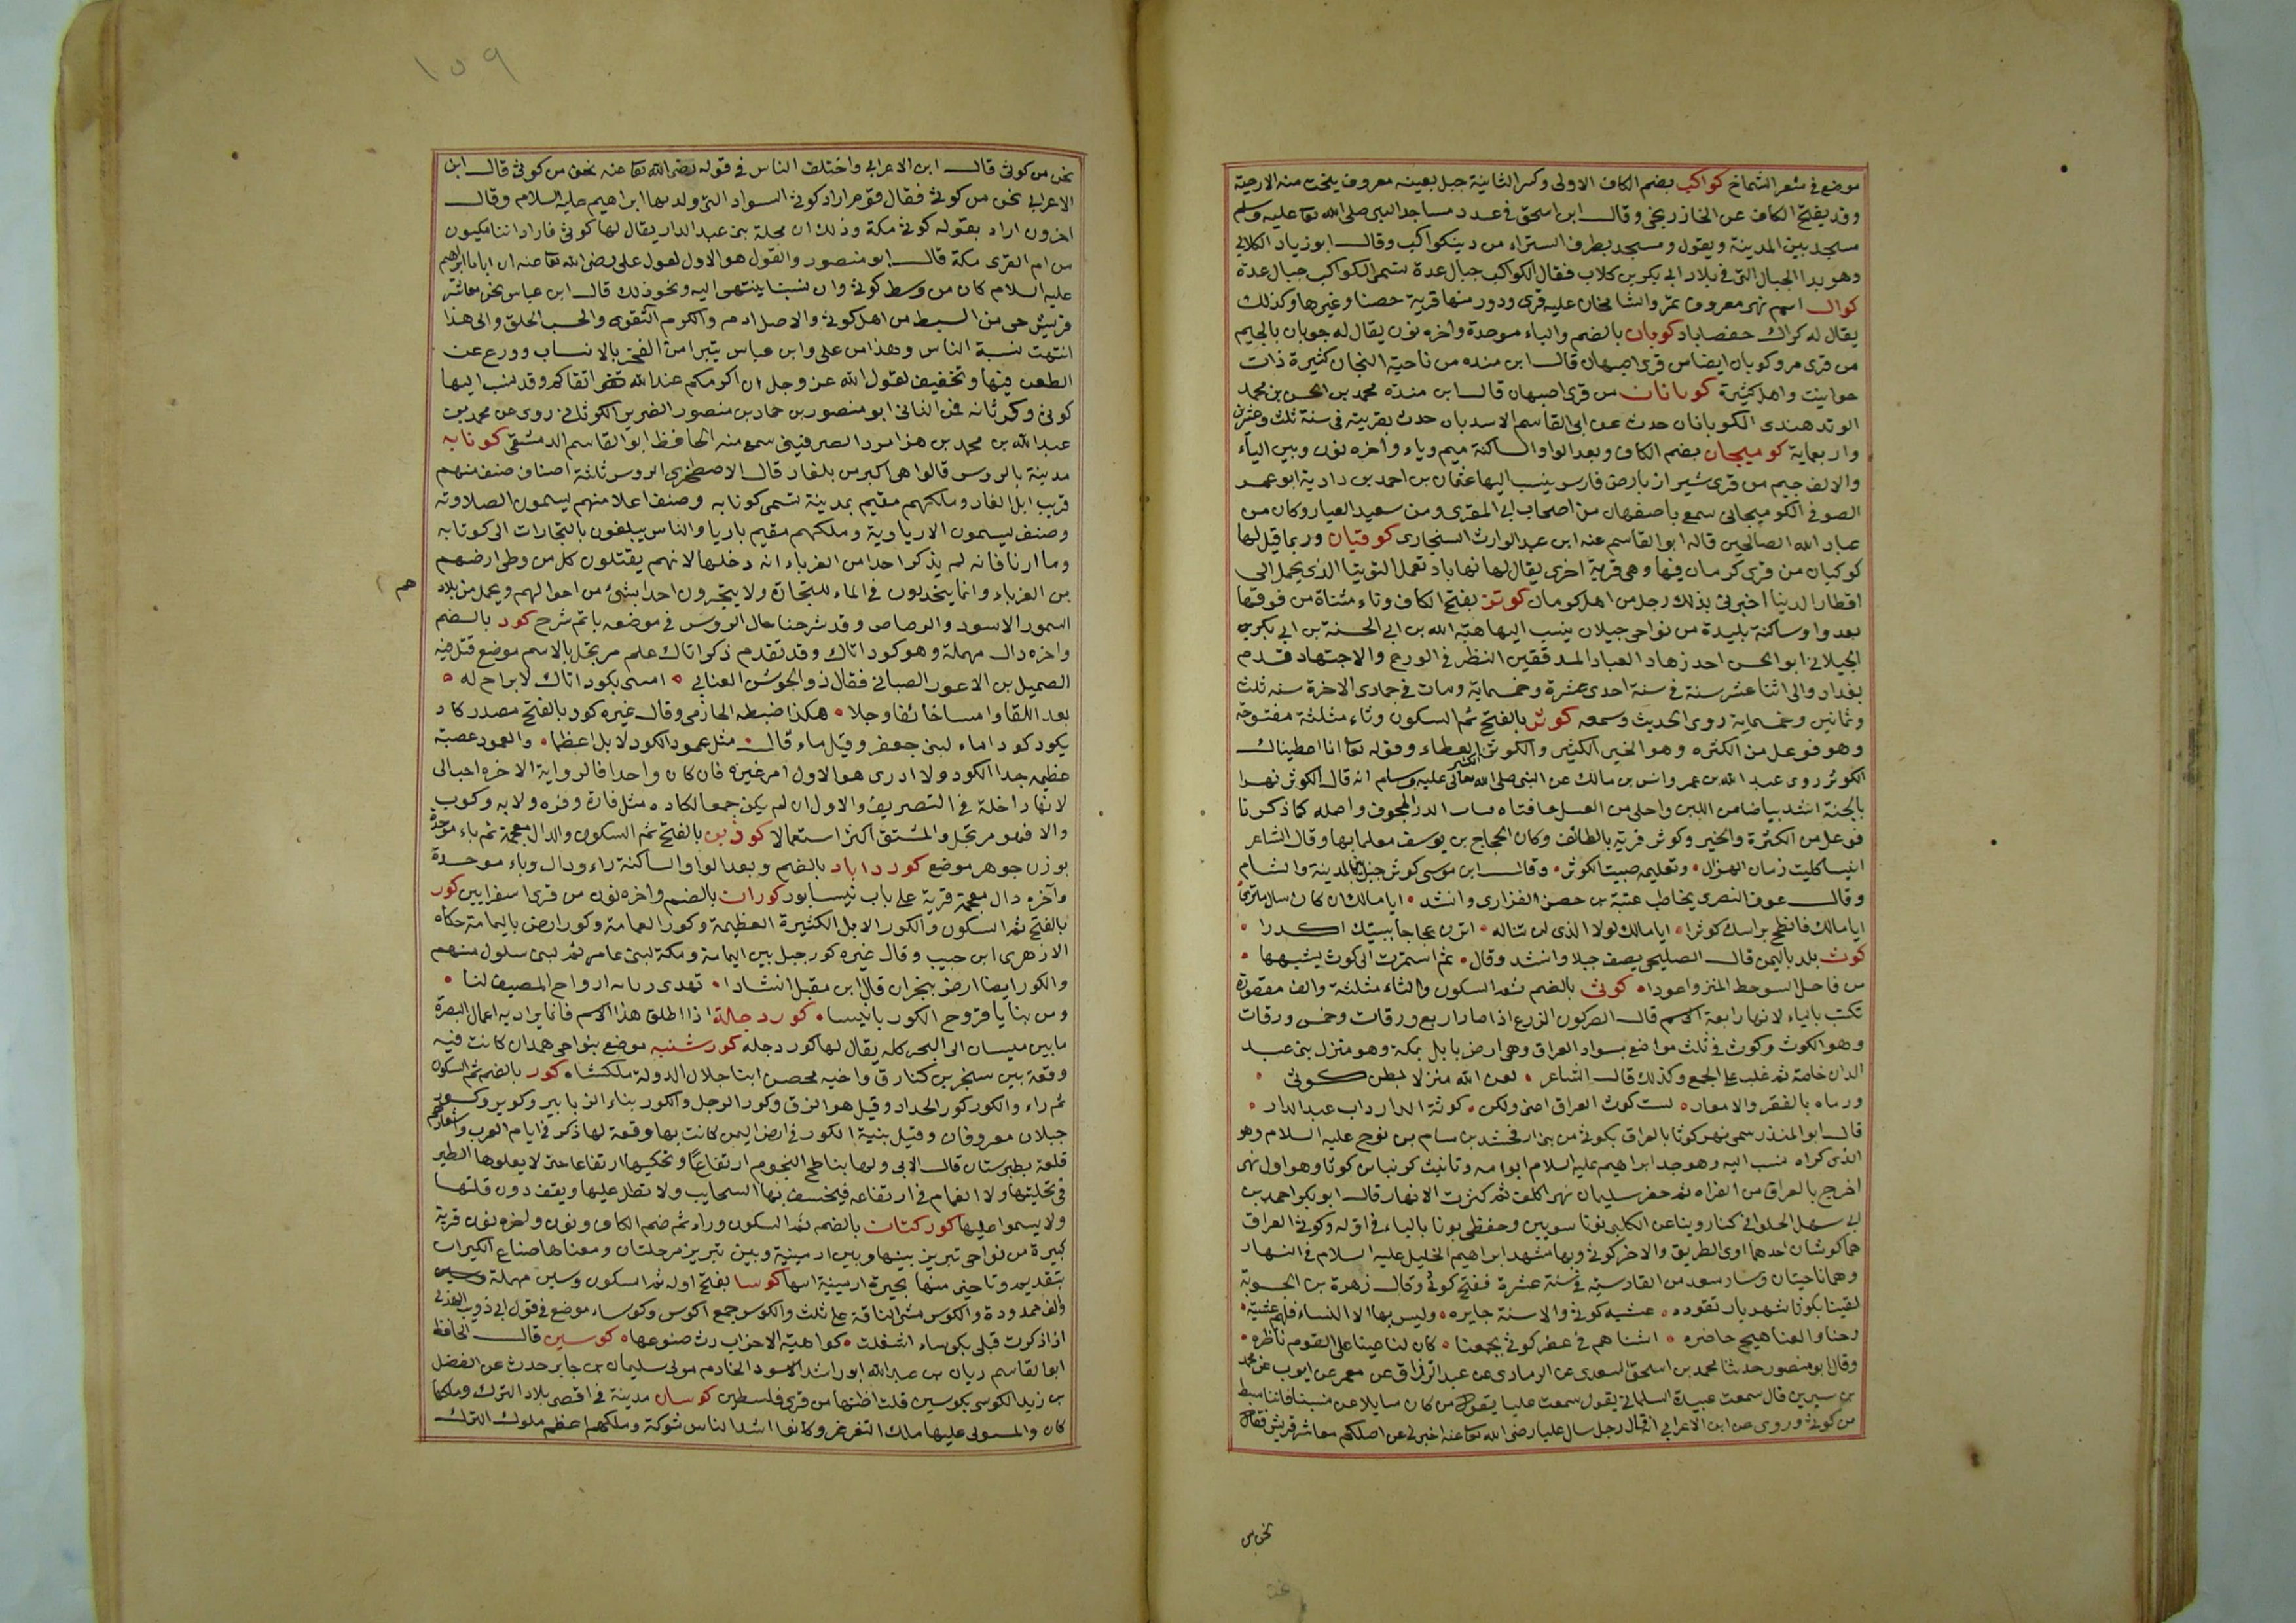 موضع في شعر الشماخ كواكب بضم الكاف الاولى وكسر الثانية جبل بعينه معروف ينحت منه الارحية
وقد يفتح الكاف عن الخارزنجي وقال ابن اسحق في عدد مساجد النبي صلى الله تعا عليه وسلم
مسجد بين المدينة ويقول ومسجد بطرف البتراء من د ينكواكب وقال ابو زياد الكلابي
وهو يد الجبال التي في بلاد ابي بكر بن كلاب فقال الكواكب جبال عدة تسمى الكواكب جبال عدة
كوال اسم نهر معروف بمرو الشاهجان عليه قرى ودور منها قرية حفصا وغيرها وكذلك
يقال له كراك حفصاباد كوبان بالضم والباء موحدة واخره نون يقال له جوبان بالجيم
من قرى مرو وكوبان ايضا من قرى اصبهان قال ابن منده من ناحية النجان كثيرة ذات
حوانيت واهل كثيرة كوبانان من قرى اصبهان قال ابن منده محمد بن الحسن بن محمد
الوندهندى الكوبانان حدث عن ابى القاسم الاسدبان حدث بقريته في سنة ثلث وعشرين
واربعماية كوميجان بضم الكاف وبعد الواو الساكنة ميم وياء واخره نون وبين الياء
والالف جيم من قرى شيراز بارض فارس ينسب اليها عثمان بن احمد بن دادية ابو عمر
الصوفي الكوميجاني سمع باصفهان من اصحاب ابي المقرى ومن سعيد العيار وكان من
عباد الله الصالحين قاله ابو القاسم عنه ابن عبد الوارث الشيجارى كوقيان وربما قيل لها
كوكيان من قرى كرمان فيها وهي قرية اخرى يقال لها نهاباد تعمل التويتا الذي يحمل الى
اقطار الدنيا اخبرني بذلك رجل من اهل كرمان كوتز بفتح الكاف وتاء مثناة من فوقها
بعد واو ساكنة بليدة من نواحى جيلان ينسب اليها هبة الله بن ابي الحسنة بن ابي بكر بن
الجيلاني ابو الحسن احد زهاد العباد المدققين النظر في الورع والاجتهاد قدم
بغداد والى اثنا عشر سنة في سنة احدى عشرة وخمسماية ومات في جمادى الاخرة سنه ثلث
وثمانين وخمسماية روى الحديث وسمعه كوثر بالفتح ثم السكون وثاء مثلثة مفتوحة
وهو فوعل من الكثره وهو الخير الكثير والكوثر الكثير العطاء وقوله تعا انا اعطيناك
الكوثر روى عبد الله بن عمر وانس بن مالك عن النبي صلى الله تعالى عليه وسلم انه قال الكوثر نهرا
بالجنة اشد بياضا من اللبن واحلى من العسل حافتاه قباب الدر المجوف واصله كما ذكرنا
فوعل من الكثرة والخير وكوثر قرية بالطائف وكان الحجاج بن يوسف معلما بها وقال الشاعر
اينسا كليت زمان الهزال • وتعليمه صبيت الكوثر • وقال ابن موسى كوثر جبل بالمدينة والشام
وقال عوف النصرى يخاطب عتبة بن حصن الفزارى وانشد • ايا مالك ان كان سال
ايا مالك فانطح براسك كوثرا • ايا مالك لولا الذى لن تناله • اثرن عجاجا ببيتك اكدرا •
كوث بلد باليمن قال الصليحي يصف جبلا وانشد وقال • ثم استمرت الى كوث يشبهها •
من فاحل السوحط المنز واعودا • كوثى بالضم ثم السكون والثاء مثلثة والف مقصورة
تكتب بالياء لانها رابعة الاسم قال كون الزرع اذا صار اربع ورقات وخمس ورقات
وهو الكوث وكوث في ثلث مواضع بسواد العراق وهي ارض بابل بمكة وهو منزل بني عبد
الدار خاصة ثم غلب على الجمع وكذلك قال الشاعر • لعن الله منزلا بطن كوثى •
ورماه بالفقر والامعار • لست كوث العراق اعني ولكن • كوثة الدار داب عبد الدار •
قال ابو المنذر سمى نهر كوثا بالعراق بكوثي من بنى ارفخشد بن سام بن نوح عليه السلام وهو
الذى كراه فنسب اليه وهو جد ابراهيم عليه السلام ابو امه وتانيث كونباس كوثا وهو اول نهر
اخرج بالعراق من الفراه ثم حفر سليمان نهر اكلف ثم كثرت الانهار قال ابو بكر احمد بن
ابي سهل الحلواني كنا روينا عن الكلبى نونا سويين وحفظى بونا بالباء في اوله وكوثي العراق
هما كوثان احدهما اوى الطريق والاخر كوثى وبها مشهد ابراهيم الخليل عليه السلام في النهار
وهما ناحيتان وسار سعد من القادسيه في سنة عشرة ففتح كوثى وقال زهرة بن الحوية
لقينا بكوثا شهريار نقوده • عشيه كوثى والاسنة جايره • وليس بها الا النساء فلهم عشية •
رحنا والعناهيج حاضره • اتيناهم في عقر كوثى بجمعنا • كان لنا عينا على القوم ناظره •
وقال ابو منصور حدثنا محمد بن اسحق السعدى عن الرمادى عن عبد الرزاق عن معمر عن ايوب عن محمد
بن سيرين قال سمعت عبيدة السلماني يقول سمعت عليا يقول من كان سايلا عن نسبنا فاننا نبط
من كوثى وروى عن ابن الاعرابي انه قال رجل سال عليا رضى الله تعا عنه اخبرني عن اصلكم معاشر قريش فقال
نحن من
١٥٩
نحن من كوثى قال ابن الاعرابي واختلف الناس في قوله رضى الله تعا عنه نحن من كوثى قال ابن
الاعرابي نحن من كوثى فقال قوم اراد كوثى السواد التي ولد بها ابراهيم عليه السلام وقال
اخرون اراد بقوله كوثى مكة وذلك ان محلة بني عبد الدار يقال لها كوثى فاراد اننا مكيون
من ام القرى مكة قال ابو منصور والقول هو الاول لقول على رضى الله تعا عنه ان ابانا ابراهيم
عليه السلام كان من وسط كوثى وان نسبنا ينتهى اليه ونحو ذلك قال ابن عباس نحن معاشر
قريش حى من السبط من اهل كوثى والاصل ادم والكرم التقوى والحسب الخلق والى هذا
انتهت نسبة الناس وهذا من على وابن عباس يتبرا من الفخر بالانساب وورع عن
الطعن فيها وتخفيف لقول الله عز وجل ان اكرمكم عند الله اتقاكم وقد نسب اليها
كوثى وكرثانه في الثاني ابو منصور بن حماد بن منصور الضرير الكوثاني روى عن محمد بن
عبد الله بن محمد بن هزامرد الصريفيني سمع منه الحافظ ابو القاسم الدمشقى كوتابه
مدينة بالروس قالوا هي اكبر من بلغار قال الاصطخرى الروس ثلثة اصناف صنف منهم
قريب ابل الغار وملكهم مقيم بمدينة تسمى كوتابه وصنف اعلا منهم يسمون الصلاوته
وصنف يسمون الارياوية وملكهم مقيم باريا والناس يبلغون بالتجارات الى كوتابه
وما ارثا فانه لم يذكر احد من الغرباء انه دخلها لانهم يقتلون كل من وطى ارضهم
من الغرباء وانما ينحدرون في الماء للتجارة ولا يخبرون احدا بشئ من احوالهم ويحمل من بلاد هم
السمور الاسود والرصاص وقد شرحنا حال الروس في موضعه باتم شرح كود بالضم
واخره دال مهملة وهو كود اثاك وقد تقدم ذكر اثاك علم مرتجل بالاسم موضع قتل فيه
الصميل بن الاعور الضبابي فقال ذو الجوشن العنابي • امسى بكود اثاك لابراح له •
بعد اللقا وامسا خائفا وجلا • هكذا ضبطه الحازمى وقال غيره كود بالفتح مصدر كاد
يكود كودا ماء لبنى جعفر وقيل ماء قال • مثل عمود الكود لا بل اعظما • والعمود عصبة
عظيمه جدا الكود ولا ادرى هو الاول امر غيره فان كان واحدا فالرواية الاخره احب الى
لانها داخلة في التصريف والاول ان لم يكن جمعا لكاده مثل فارة وفره ولابه وكوب
والا فهو مرتجل والمشتق اكثر استعمالا كوذب بالفتح ثم السكون والدال معجمة ثم باء موحدة
بوزن جوهر موضع كورداباد بالضم وبعد الواو الساكنة راء ودال وباء موحدة
وآخره دال معجمة قرية على باب نيسابور كوران بالضم واخره نون من قرى اسفراين كور
بالفتح ثم السكون والكور الابل الكثيرة العظيمة وكور العمامة وكور ارض باليمامة حكاه
الازهرى ابن حبيب وقال غيره كور جبل بين اليمامة ومكة لبنى عامر ثم لبنى سلول منهم
والكور ايضا ارض بنجران قال ابن مقبل انشادا • تهدى ارواح المصيف لنا •
ومن ثنايا فروح الكور باتيسا • كور دجالة اذا اطلق هذا الاسم فانما يراد به اعمال البصرة
ما بين ميسان الى البحر كله يقال لها كور دجله كورشنبه موضع بنواحى همدان كانت فيه
وقعة بين سنجر بن كتارق واخيه محصن ابنا جلال الدولة ملكشاه كور بالضم ثم السكون
ثم راء والكور كور الحداد وقيل هو الزق وكور الرحل والكور بناء الزنابير وكوير وكور
جبلان معروفان وقيل بثنية الكور في ارض اليمن كانت بها وقعة لها ذكر في ايام العرب واشعارهم
قلعة بطبرستان قال الابي ولها يناطح النجوم ارتفاعا وتحكيها ارتفاعا حتى لا يعلوها الطير
في تحليقها ولا الغمام في ارتفاعه فيخسف بها السحايب ولا تطل عليها ويقف دون قلتها
ولا يسموا عليها كوركنان بالضم ثم السكون وراء ثم ضم الكاف ونون واخره نون قرية
كبيرة من نواحى تبريز بينها وبين ارمينية وبين تبريز مرحلتان ومعناها صناع الكيران
بتقديم وتاخير منها بحيرة ارمينية اسها كوسا بفتح اوله ثم السكون وسين مهملة
والف ممدودة والكوس مشى الناقة على ثلث والكوس جمع اكوس وكوساء موضع في قول ابي ذويب الهذلي
اذا ذكرت قبلى بكوساء اشعلت • كواهية الاخراب رث صنوعها • كوسين قال الحافظ
ابو القاسم ريان بن عبد الله ابو راشد الاسود الخادم مولى سليمان بن جابر حدث عن الفضل
بن زيد الكوسى بكوسين قلت اظنها من قرى فلسطين كوسان مدينة في اقصى بلاد الترك وملكها
كان والمسولى عليها ملك التغرغر وكانوا اشد الناس شوكة وملكهم اعظم ملوك الترك